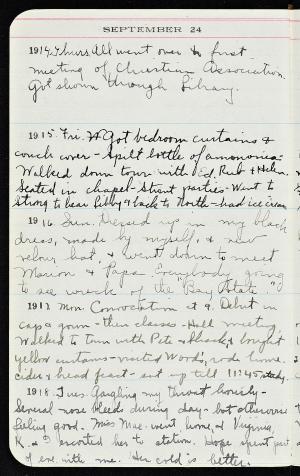 SEPTEMBER 24
1914. Thurs. All went over to first
meeting of Christian Association.
Got shown through Library.
1915 Fri. Got bedroom curtains &
couch cover - Spilt bottle of ammonia -
Walked down town with Ed, Rub & Helen.
Seated in chapel - Stunt parties - Went to
Strong to hear Libby & back to North - had ice cream
1916 Sun. Dressed up in my black
dress, made by myself, & new
velour hat, & went down to meet
Marion & Papa. Everybody going
to see wreck of the "Bay State."
1917 Mon. Convocation at 9. Debut in
cap & gown - then classes - Hall meeting,
Walked to town with Pete & & bought
yellow curtains - visited Wood's, rode home.
cider & head feast - sat up till 11:45 study.
1918. Tues. Gargling my throat hourly -
Several nose bleeds during day - but otherwise
feeling good. Miss Mac. went home, & Virginia,
K. & I escorted her to station. Hope spent part
of eve. with me. Her cold is better.